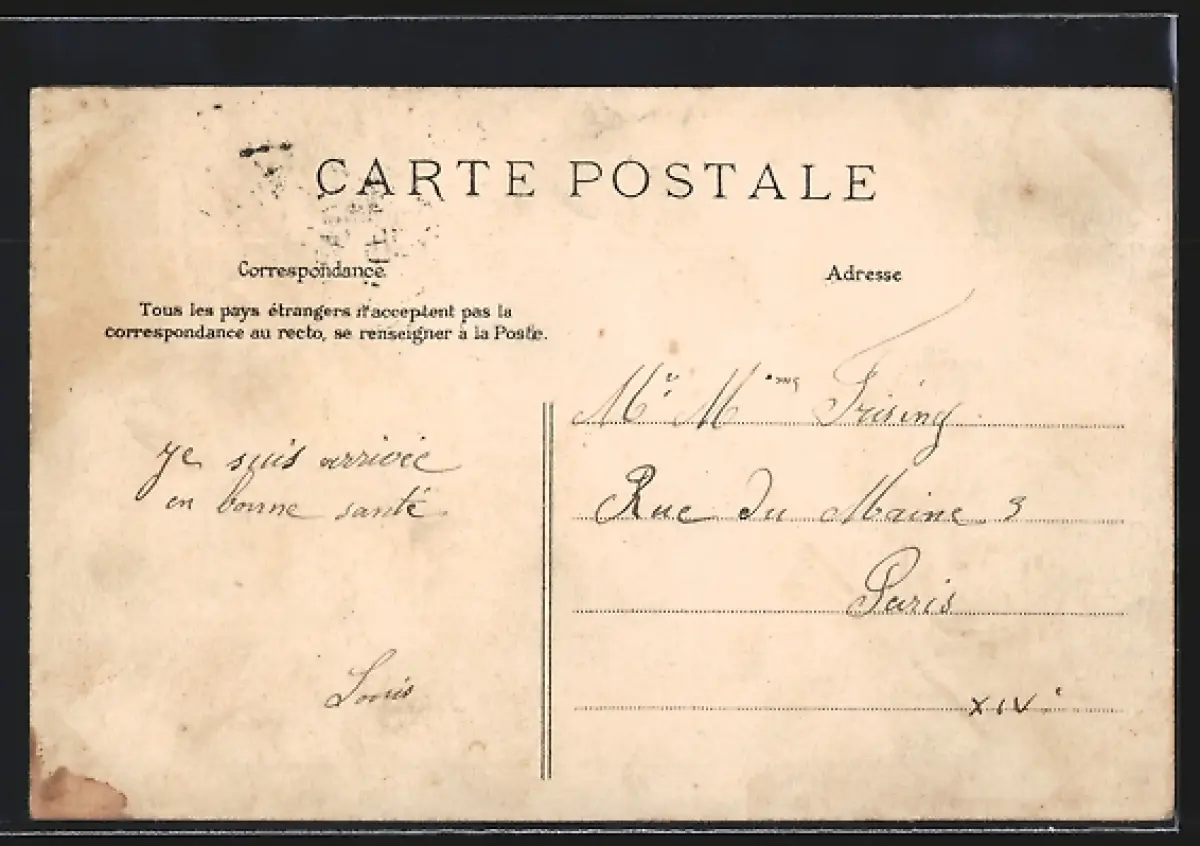 CARTE POSTALE
Correspondance
Adresse
Tous les pays étrangers n'acceptent pas la
correspondance au recto, se renseigner à la Poste.
Mr Mme Frising
Rue du Maine 3
Paris
XIVe
Je suis arrivée
en bonne santé
Louis